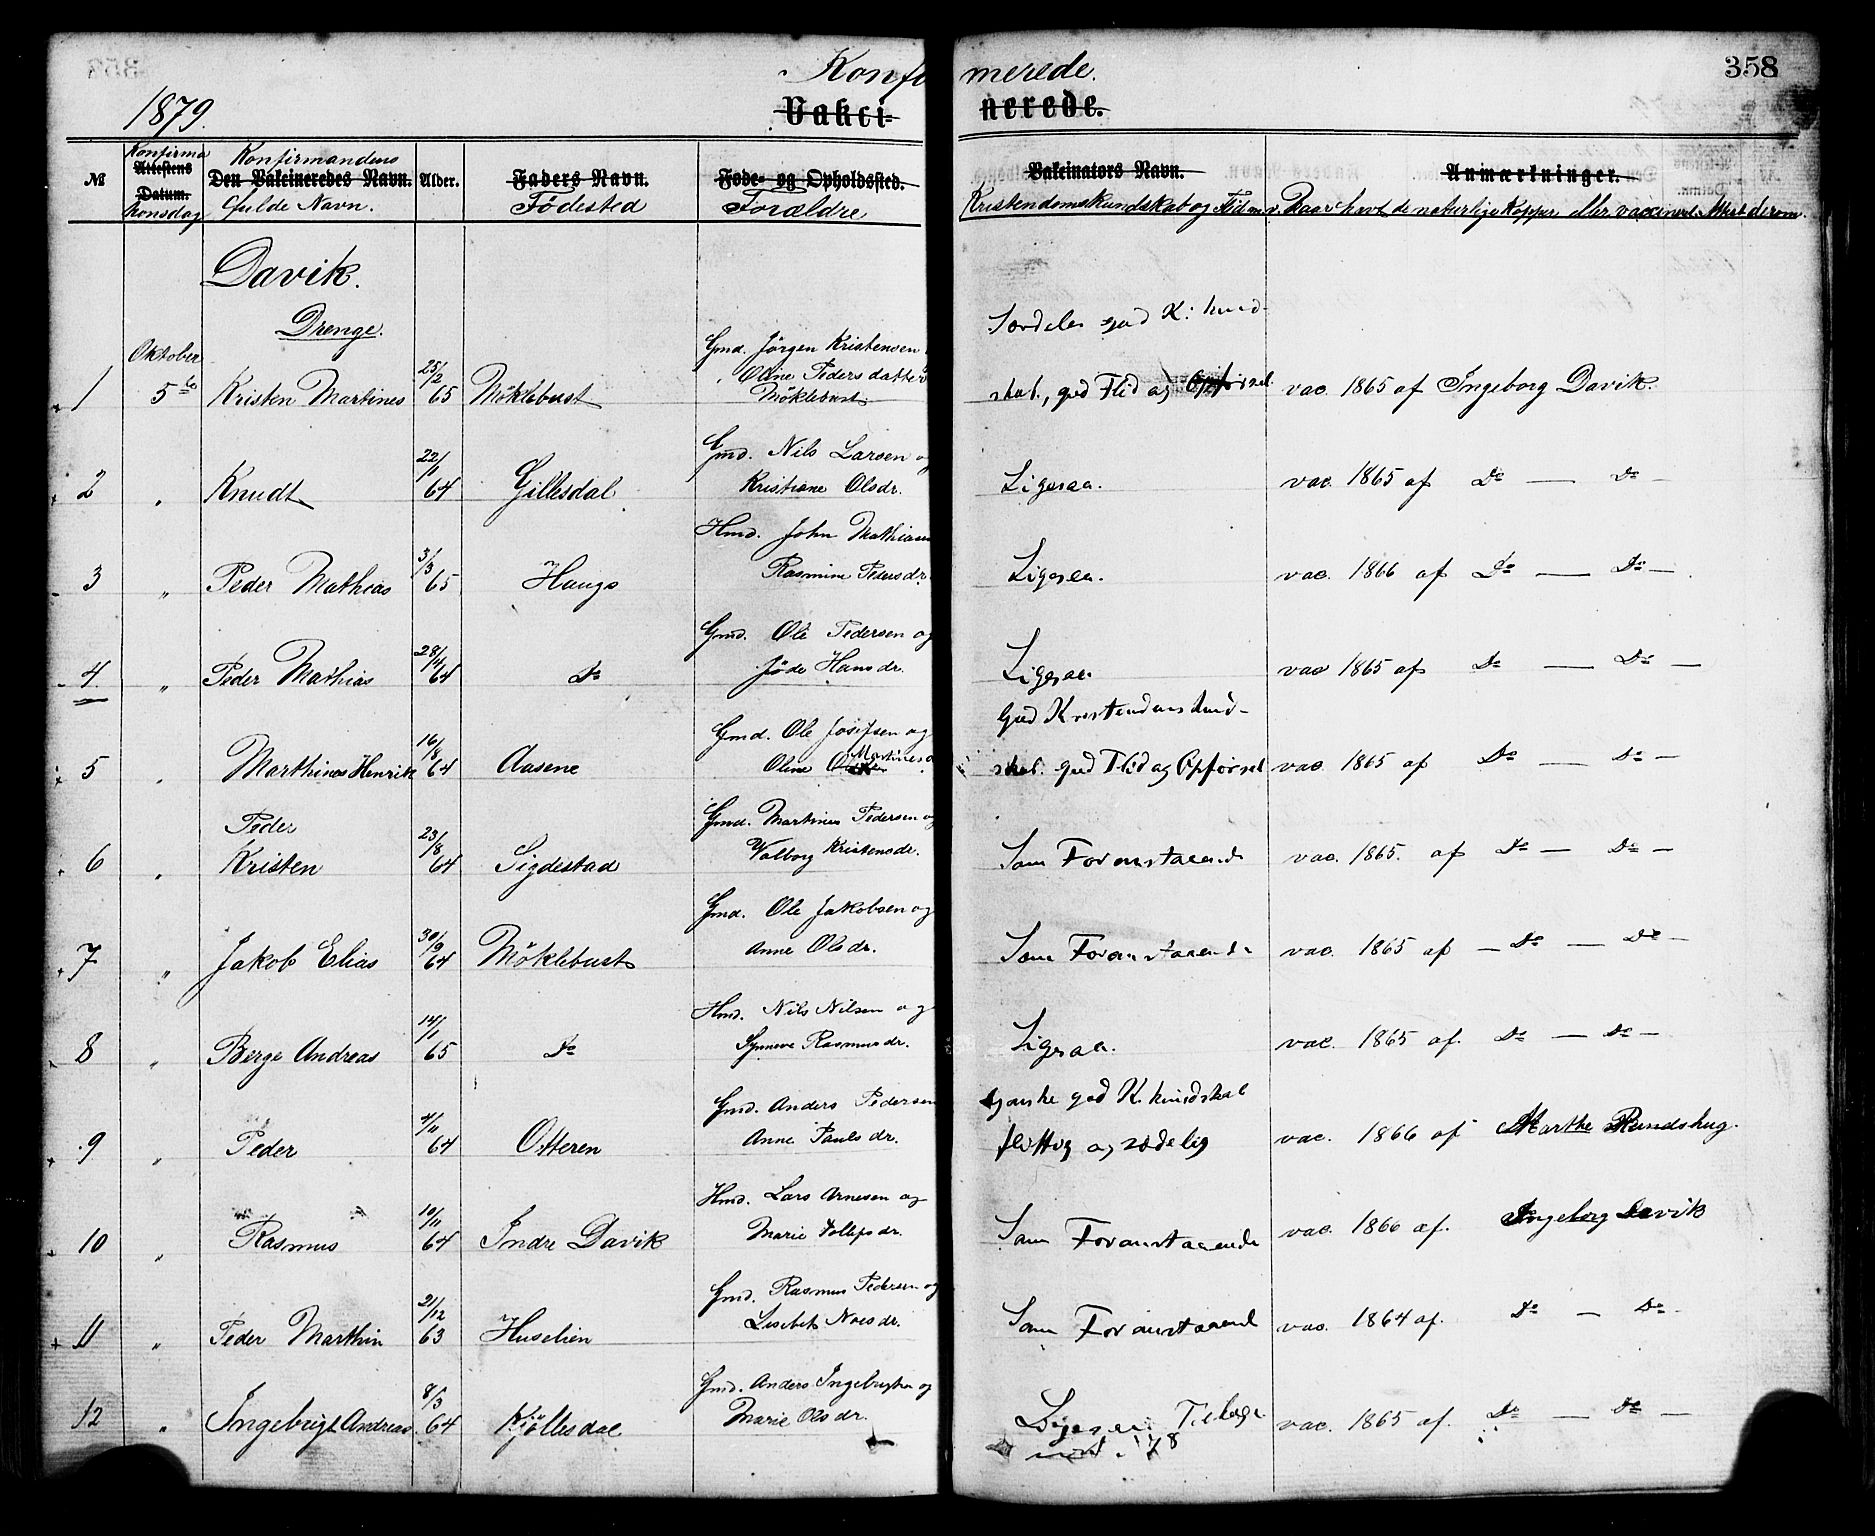 Konfirmerede.
358
1879.
Vakcinerede.
№
Konfirma
Attestens Datum.
Konfirmandens
Den Vakcineredes Navn.
fulde Navn.
Alder.
Faders Navn.
Födested
Føde- og Opholdssted.
Forældre
Vakcinators Navn.
Kristendomskundskab og Flid m.v.
Anmærkninger.
Naar havt de naturlige Kopper eller vaccineret Attest derom.
Davik.
Drenge.
Oktober
Særdeles god K: kund-
1 5te Kristen Martines 25/2 65 Möklebust Gmd. Jörgen Kristensen
Oline Pedersdatter
Möklebust
skab, god Flid og Opførsel. vac. 1865 af Ingeborg Davik.
2 " Knudt 22/1 64 Gillesdal Gmd. Nils Larsen og
Kristiane Olsdr.
Ligesaa. vac. 1865 af Do — Do —
3 " Peder Mathias 3/3 65 Hauge Hmd. John Mathiasen
Rasmine Pedersdr.
Ligesaa. vac. 1866 af Do — Do —
4 " Peder Mathias 28/4 64 Do Gmd. Ole Pedersen og
Jöde Hansdr.
Ligesaa vac 1865 af Do — Do —
God Kristendomskund-
5 " Marthines Henrik 16/8 64 Aasene Gmd. Ole Josefsen og
Oline Martinesd
skab. god Flid og Opførsel vac. 1865 af Do — Do —
6 " Peder
Kristen 23/8 64 Sigdestad Gmd. Martines Pedersen og
Valborg Kristensdr.
Som Foranstaaende vac. 1865. af Do — Do —
7 " Jakob Elias 30/9 64 Möklebust Gmd. Ole Jakobsen og
Anne Olsdr.
Som Foranstaaende vac. 1865 af — Do — Do —
8 " Berge Andreas 14/1 65 Do Hmd. Nils Nilsen og
Synneve Rasmusdr.
Ligesaa. vac. 1865 af. Do — Do —
ganske god K. kundskab
9 " Peder 4/11 64 Otteren Gmd. Anders Pedersen
Anne Paulsdr.
flittig og sædelig vac. 1866 af Marthe Rundshug.
10 " Rasmus 10/11 64 Indre Davik Hmd. Lars Arnesen og
Marie Tollefsdr.
Som Foranstaaende vac. 1866 af. Ingeborg Davik
11 " Peder Marthin 21/12 63 Huselien Gmd. Rasmus Pedersen og
Lisebet Noesdr.
Som Foranstaaend vac. 1864 af. Do — Do
12 " Ingebrigt Andreas 8/3 64 Kjöllesdal Gmd. Anders Ingebrigtsen og
Marie Olsdr.
Ligesaa. vac. 1865 af. Do — Do —